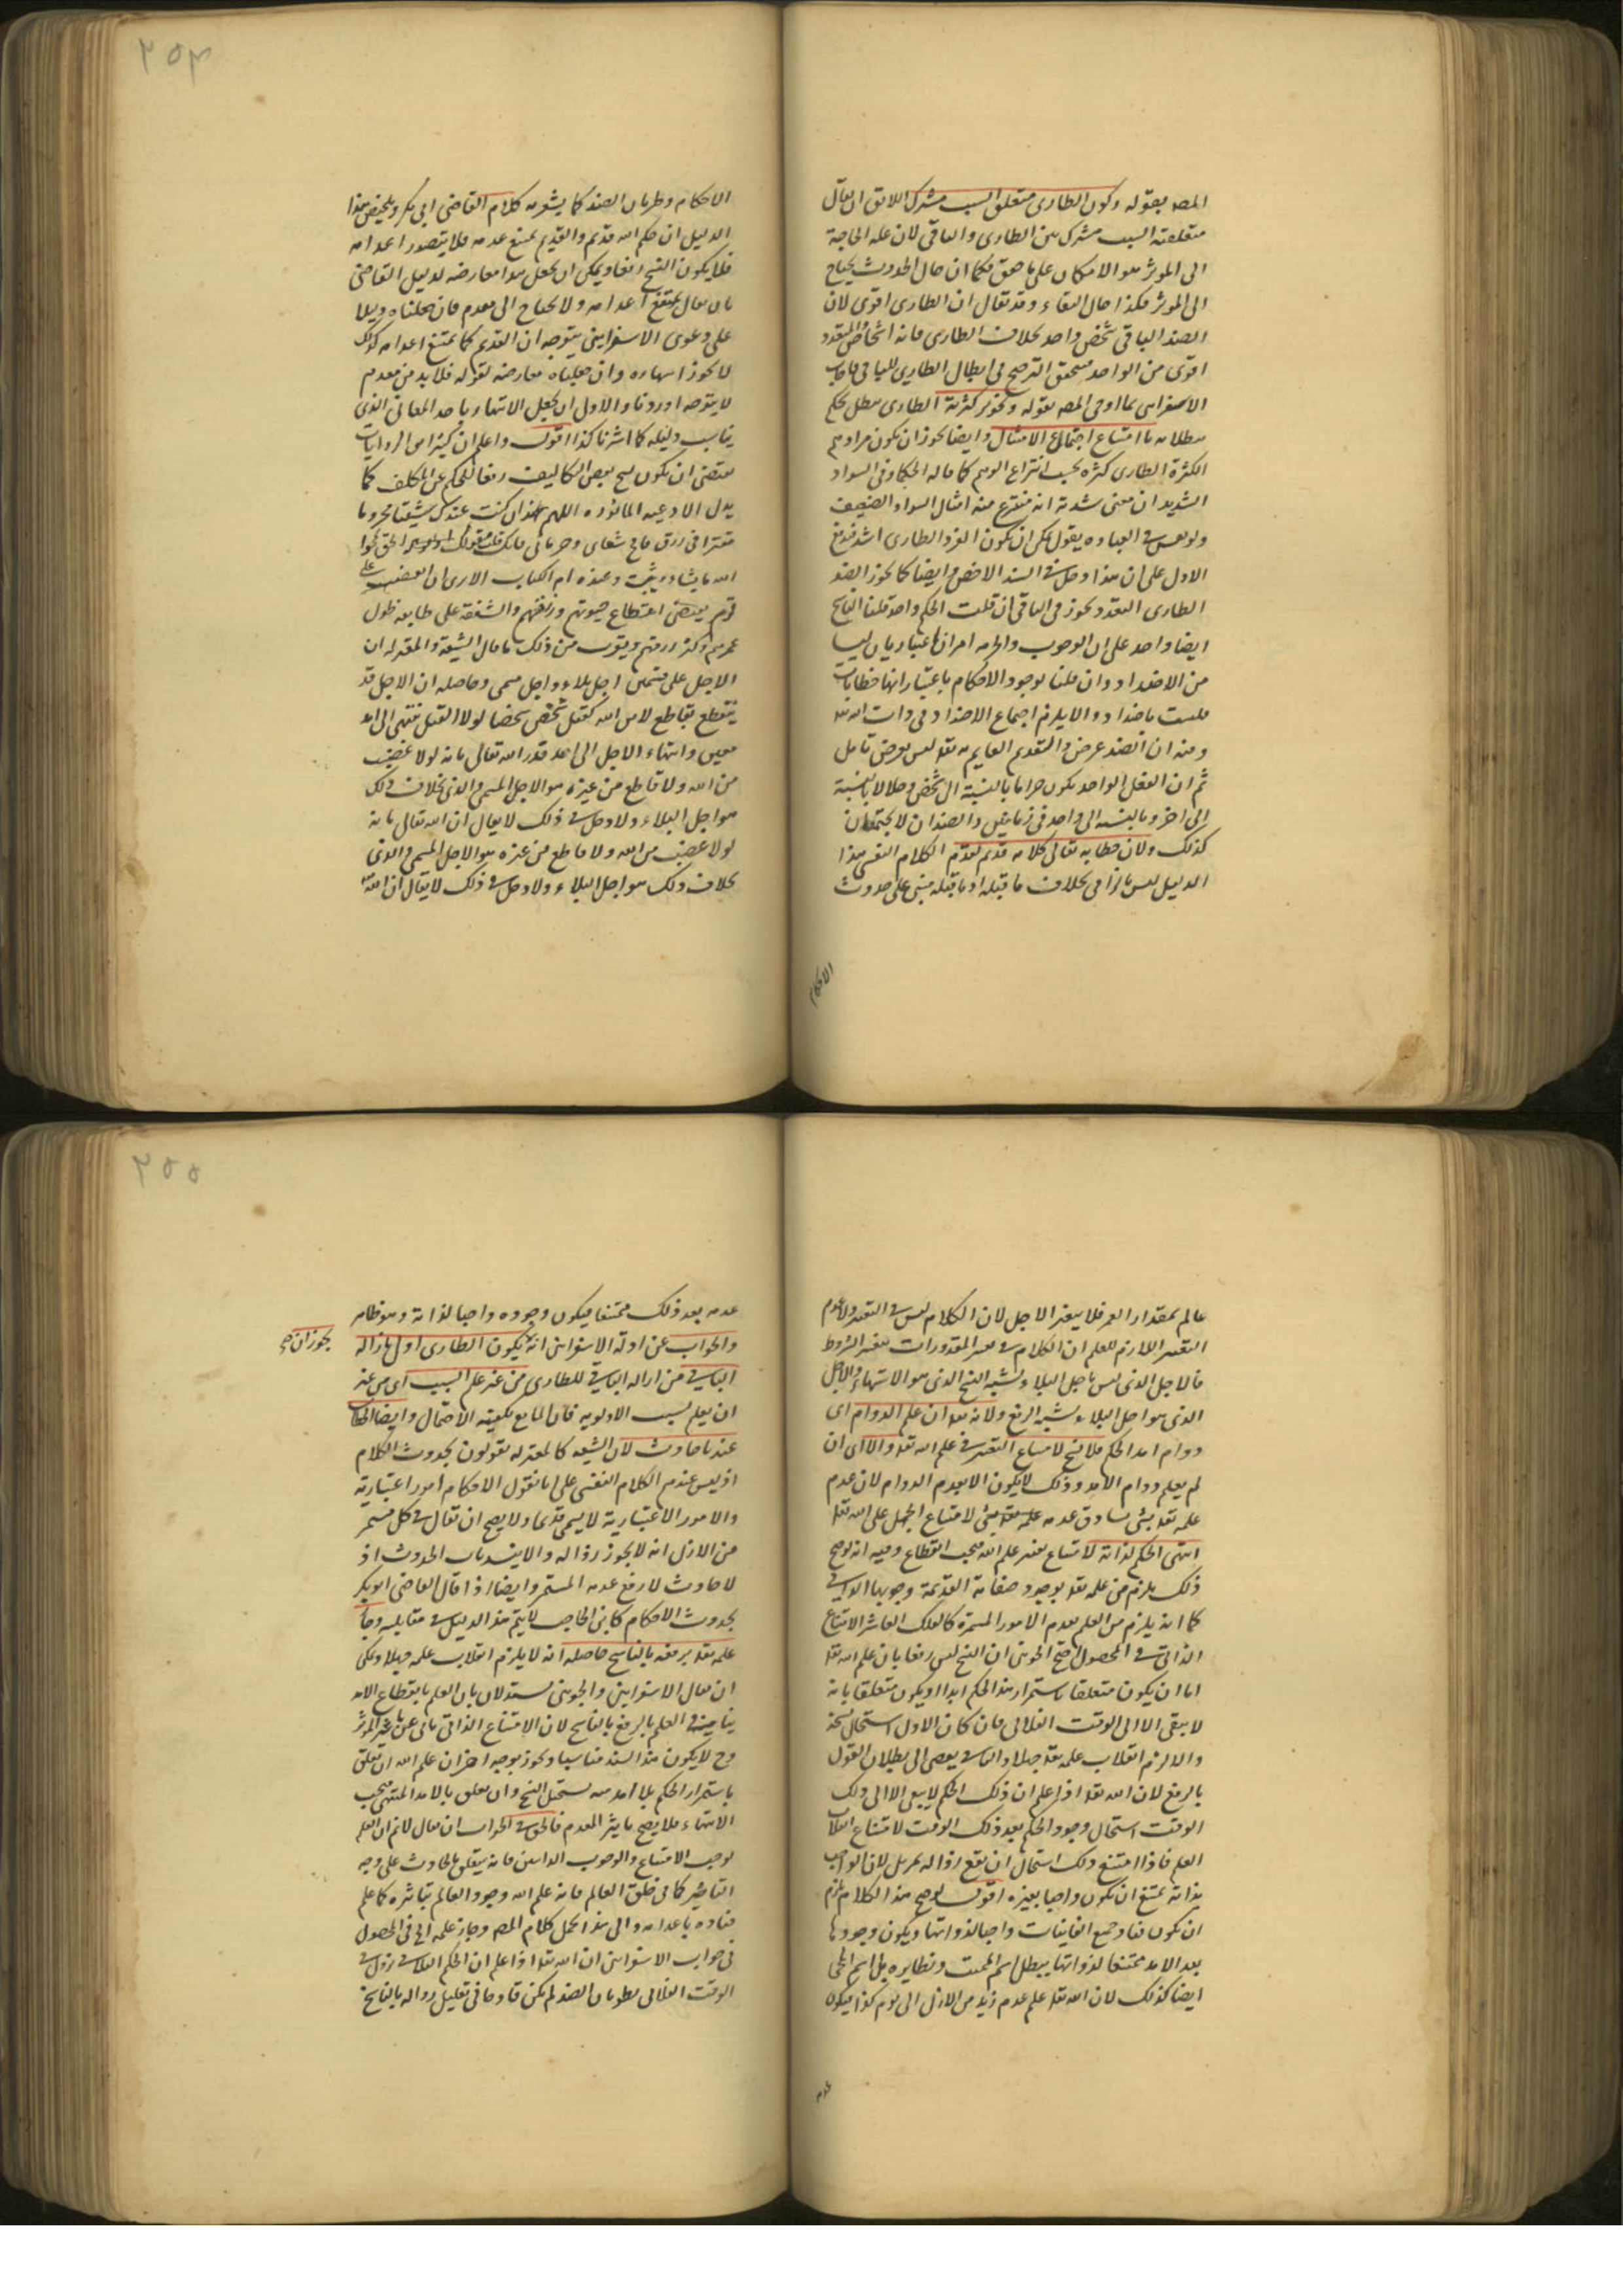 ٢٥٤
المصـ بقوله وكون الطارى متعلق السبب مشترك اللائق ان يقال
متعلقة السبب مشترك بين الطارى والباقى لان علة الحاجة
الى المؤثر هو الامكان على ما حقق فكما ان حال الحدوث يحتاج
الى المؤثر فكذا حال البقاء وقد يقال ان الطارى اقوى لان
الضد الباقى شخص واحد بخلاف الطارى فانه اشخاص والمتعدد
اقوى من الواحد فيتحقق الترجيح فى ابطال الطارى للباقى فاجاب
الاسفراينى بما اومى المصـ بقوله وتجويز كثرة الطارى مبطل يحكم
ببطلانه بامتناع اجتماع الامثال وايضا يجوز ان يكون مرادهم
الكثرة الطارى كثرة بحسب انتزاع الوهم كما قاله الحكماء فى السواد
الشديد ان معنى شدته انه منتزع منه امثال السواد الضعيف
العبارة يقول يمكن ان يكون الفرد الطارى اشد فيدفع
الاول على ان هذا دخل فى السند الاخص وايضا كما يجوز الضد
الطارى التعدد يجوز فى الباقى ان قلت الحكم واحد قلنا الناسخ
ايضا واحد على ان الوجوب والحرمة امران اعتباريان ليسا
من الاضداد وان قلنا بوجود الاحكام باعتبار انها خطابات
فليست باضداد والا يلزم اجتماع الاضداد فى ذات الله تعـ
ومنه ان الضد عرض والتقديم القايم به تعـ ليس بعرض تامل
ثم ان الفعل الواحد يكون حراما بالنسبة الى شخص وحلالا بالنسبة
الى اخر وبالنسبة الى واحد فى زمانين والضدان لا يجتمعان
كذلك ولان خطابه تعالى كلامه قديم لقدم الكلام النفسى هذا
الدليل ليس بالزامى بخلاف ما قبله اذ ما قبله مبنى على حدوث
الاحكام
الاحكام وطريان الضد كما يشعر به كلام القاضى ابى بكر وتلخيص هذا
الدليل ان حكم الله قديم والقديم يمتنع عدمه فلا يتصور اعدامه
فلا يكون النسخ رفعا ويمكن ان يجعل هذا معارضه لدليل القاضى
بان يقال يمتنع اعدامه ولا يحتاج الى معدم فان جعلناه دليلا
على دعوى الاسفراينى يتوجه ان القديم كما يمتنع اعدامه كذلك
لا يجوز انتهاؤه وان جعلناه معارضه لقوله فلا بد من معدم
لا يتوجه اوردنا والاول ان يجعل الانتهاء باحد المعانى الذى
يناسب دليله كما اشرنا كذا اقول واعلم ان كثيرا من الروايات
يقتضى ان يكون نسخ بعض التكاليف رفعا للحكم عن المكلف كما
يدل الادعية الماثورة اللهم ان كنت عندك شقيا محروما
مقترا فى رزق فامح شقاى وحرمانى فانك قلت وقولك الحق يمحوا
الله ما يشاء ويثبت وعنده ام الكتاب الا ترى ان الغضب على
قوم يقتضى انقطاع حيوتهم ورزقهم والشفقة على طايفه طول
عمرهم وكثرة رزقهم ويقرب من ذلك ما قال الشيعة والمعتزله ان
الاجل على قسمين اجل بلاء واجل مسمى وحاصله ان الاجل قد
ينقطع بقاطع لامن الله كقتل شخص شخصا لولا القتل ينتهى الى امد
معين وانتهاء الاجل الى امد قدر الله تعالى بانه لولا غضب
من الله ولا قاطع من غيره هو الاجل المسمى والذى بخلاف ذلك
هو اجل البلاء ولا دخل فى ذلك لا يقال ان الله تعالى بانه
لولا غضب من الله ولا قاطع من غيره هو الاجل المسمى والذى
بخلاف ذلك هو اجل البلاء ولا دخل فى ذلك لا يقال ان الله تعـ
٢٥٥
عالم بمقدار العمر فلا يتغير الاجل لان الكلام ليس فى التغير ولا لزوم
التغير اللازم للعلم ان الكلام فى تغير المقدورات بتغير الشروط
فالاجل الذى ليس باجل البلاء يشبه النسخ الذى هو الانتهاء والاجل
الذى هو اجل البلاء يشبه الرفع ولانه تعـ ان علم الدوام اى
دوام امد الحكم فلا نسخ لامتناع التغير فى علم الله تعـ والا اى ان
لم يعلم دوام الامد وذلك لا يكون الا بعدم الدوام لان عدم
علمه تعـ بشى يساوق عدمه علمه بشى لامتناع الجهل على الله تعـ
انتهى الحكم لذاته لامتناع تغير علم الله فيجب انقطاع وفيه انه لو صح
ذلك يلزم من علمه تعـ بوجود صفاته القديمة وجوبها الذاتى
كما انه يلزم من العلم بعدم الامور المستمرة كالفلك العاشر الامتناع
الذاتى فى المحصول احتج الجوينى ان النسخ ليس رفعا بان علم الله تعـ
اما ان يكون متعلقا باستمرار هذا الحكم ابدا او يكون متعلقا بانه
لا يبقى الا الى الوقت الفلانى فان كان الاول استحال نسخه
والا لزم انقلاب علمه تعـ جهلا والثانى يفضى الى بطلان القول
بالرفع لان الله تعـ اذا علم ان ذلك الحكم لا يبقى الا الى ذلك
الوقت استحال وجود الحكم بعد ذلك الوقت لامتناع انقلاب
العلم فاذا امتنع ذلك استحال ان يقع زواله بمزيل لان الواجب
بذاته يمتنع ان يكون واجبا بغيره اقول لو صح هذا الكلام يلزم
ان يكون فناء جميع الفانيات واجبا لذواتها ويكون وجودها
بعد الامد ممتنعا لذواتها يبطل اسم المميت ونظايره بل اسم المحى
ايضا كذلك لان الله تعـ علم عدم زيد من الازل الى يوم كذا فيكون
عدمه
عدمه بعد ذلك ممتنعا فيكون وجوده واجبا لذاته وهو ظاهر
والجواب عن ادلة الاسفراينى انه يكون الطارى اولى بازالة
يجوز ان صح
الباقى من ازالة الباقى للطارى من غير علم السبب اى من غير
ان يعلم سبب الاولوية فان المانع يكفيه الاحتمال وايضا الخطاب
عندنا حادث لان الشيعه كالمعتزله يقولون بحدوث الكلام
اذ ليس عندهم الكلام النفسى على انا نقول الاحكام امور اعتبارية
والامور الاعتبارية لا يسمى قديما ولا يصح ان يقال فى كل مستمر
من الازل انه لا يجوز زواله والا ينسد باب الحدوث اذ
لا حادث الا رفع عدمه المستمر وايضا اذا قال القاضى ابو بكر
بحدوث الاحكام كابن الحاجب لا يتم هذا الدليل فى مقابلته وجاز
علمه تعـ برفعه بالناسخ حاصله انه لا يلزم انقلاب علمه جهلا ويمكن
ان يقال الاسفراينى والجوينى يستدلان بان العلم بانقطاع الامد
ينافيه العلم بالرفع بالناسخ لان الامتناع الذاتى يابى عن تاثير المؤثر
وح لا يكون هذا السند مناسبا ويجوز بوجه اخر ان علم الله ان تعلق
باستمرار الحكم بلا امد يستحيل النسخ وان تعلق بالامد المنتهى فيجب
الانتهاء فلا يصح تاثير المعدم فالحق فى الجواب ان يقال لا نم ان العلم
يوجب الامتناع والوجوب الذاتيين فانه يتعلق بالحادث على وجه
التاثير كما فى خلق العالم فانه علم الله وجود العالم بتاثيره كما علم
فناءه باعدامه والى هذا يحمل كلام المصـ وجاز علمه الخ فى المحصول
فى جواب الاسفراينى ان الله تعـ اذا علم ان الحكم الفلانى يزول فى
الوقت الفلانى بطريان الضد لم يكن قادحا فى تعليل زواله بالناسخ